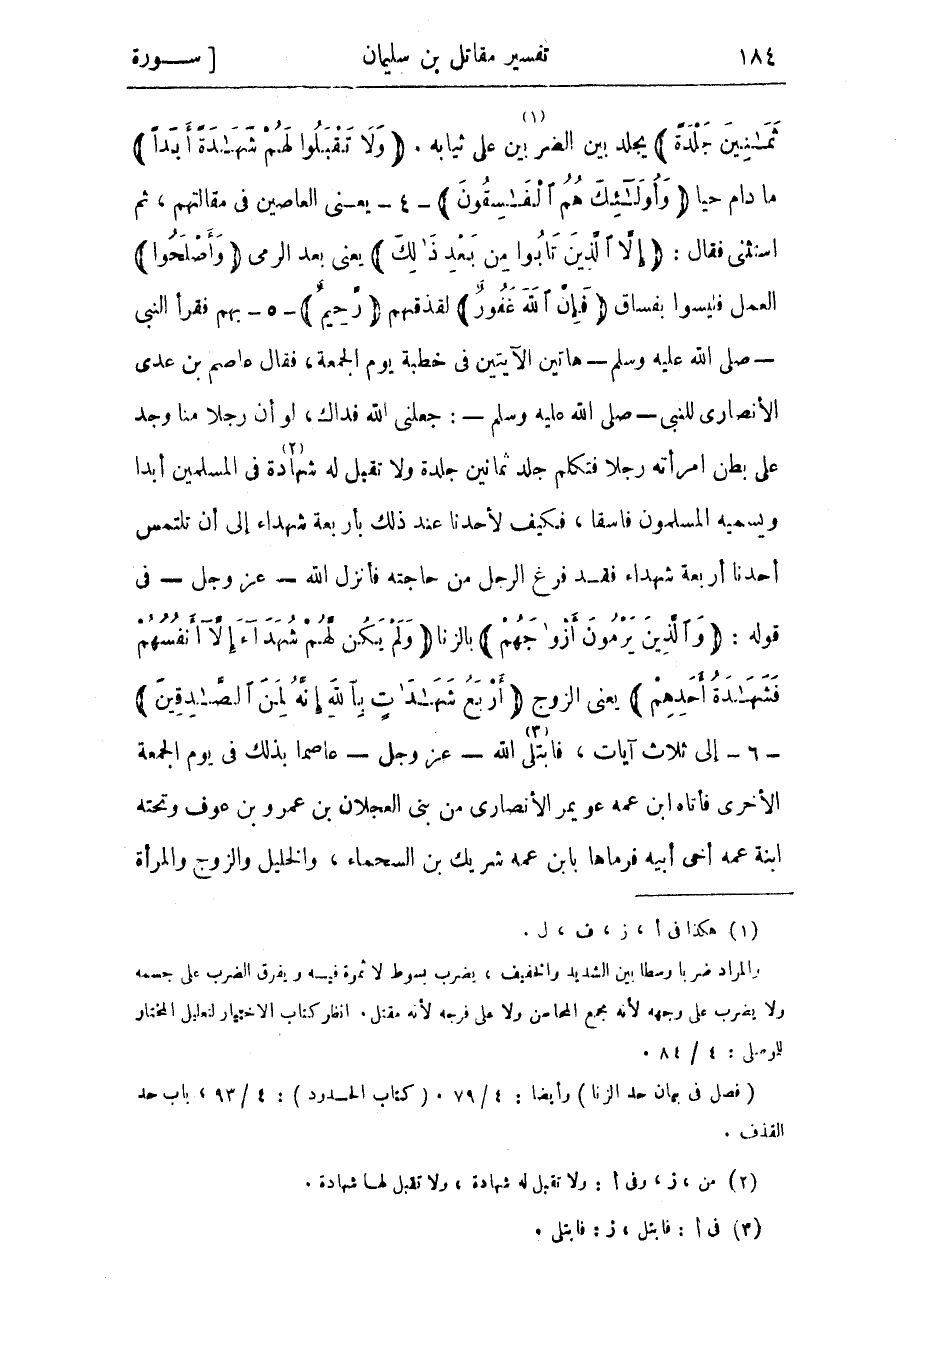 ١٨٤ تفسير مقاتل بن سليمان [ ســورة
ثَمَـٰنِينَ جَلْدَةً ﴾ يجلد بين الضربين على ثيابه (١) . ﴿ وَلَا تَقْبَلُوا لَهُمْ شَهَـٰدَةً أَبَدًا ﴾
ما دام حيا ﴿ وَأُولَـٰٓئِكَ هُمُ ٱلْفَـٰسِقُونَ ﴾ ـ ٤ ـ يعـنى العاصين فى مقالتهم ، ثم
استثنى فقال : ﴿ إِلَّا ٱلَّذِينَ تَابُوا مِن بَعْدِ ذَٰلِكَ ﴾ يعنى بعد الرمى ﴿ وَأَصْلَحُوا ﴾
العمل فليسوا بفساق ﴿ فَإِنَّ ٱللَّهَ غَفُورٌ ﴾ لقذفهم ﴿ رَّحِيمٌ ﴾ ـ ٥ ـ بهم فقرأ النبى
— صلى الله عليه وسلم — هاتين الآيتين فى خطبة يوم الجمعة ، فقال عاصم بن عدى
الأنصارى للنبى — صلى الله عليه وسلم — : جعلنى الله فداك ، لو أن رجلا منا وجد
على بطن امرأته رجلا فتكلم جلد ثمانين جلدة ولا تقبل له شهادة (٢) فى المسلمين أبدا
ويسميه المسلمون فاسقا ، فكيف لأحدنا عند ذلك بأربعة شهداء إلى أن تلتمس
أحدنا أربعة شهداء فقـد فرغ الرجل من حاجته فأنزل الله — عز وجل — فى
قوله : ﴿ وَٱلَّذِينَ يَرْمُونَ أَزْوَٰجَهُمْ ﴾ بالزنا ﴿ وَلَمْ يَكُن لَّهُمْ شُهَدَآءُ إِلَّآ أَنفُسُهُمْ
فَشَهَـٰدَةُ أَحَدِهِمْ ﴾ يعنى الزوج ﴿ أَرْبَعُ شَهَـٰدَٰتٍ بِٱللَّهِ إِنَّهُ لَمِنَ ٱلصَّـٰدِقِينَ ﴾
ـ ٦ ـ إلى ثلاث آيات ، فابتلى (٣) الله — عز وجل — عاصما بذلك فى يوم الجمعة
الأخرى فأتاه ابن عمه عويمر الأنصارى من بنى العجلان بن عمرو بن عوف وتحته
ابنة عمه أخى أبيه فرماها بابن عمه شريك بن السحماء ، والخليل والزوج والمرأة
(١) هكذا فى أ ، ز ، ف ، ل .
والمراد ضربا وسطا بين الشديد والخفيف ، يضرب بسوط لا ثمرة فيـه ويفرق الضرب على جسمه
ولا يضرب على وجهه لأنه مجمع المحاسن ولا على فرجه لأنه مقتل . انظر كتاب الاختيار لتعليل المختار
للموصلى : ٤ / ٨٤ .
( فصل فى بيان حد الزنا ) وأيضا : ٤ / ٧٩ . ( كتاب الحـدود ) : ٤ / ٩٣ ، باب حد
القذف .
(٢) من ، ز ، وفى أ : ولا تقبل له شهادة ، ولا تقبل لهـا شهادة .
(٣) فى أ : فابتل ، ز : فابتلى .